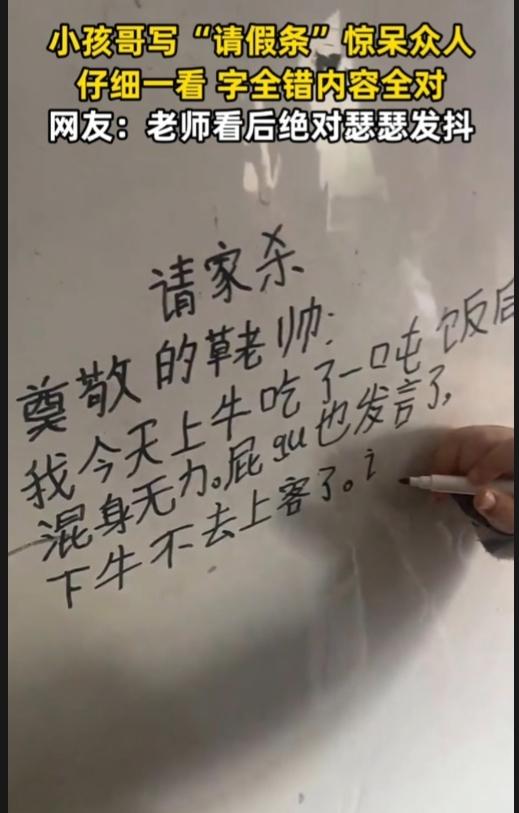 小孩哥写“请假条”惊呆众人
仔细一看 字全错内容全对
网友：老师看后绝对瑟瑟发抖
请家杀
尊敬的老帅：
我今天上牛吃了一口吨饭后
混身无力。屁gu也发言了，
下牛不去上客了。i